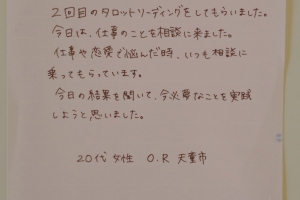 2回目のタロットリーディングをしてもらいました。
今日は、仕事のことを相談に来ました。
仕事や恋愛で悩んだ時、いつも相談に
乗ってもらっています。
今日の結果を聞いて、今必要なことを実践
しようと思いました。
20代 女性 O.R 天童市